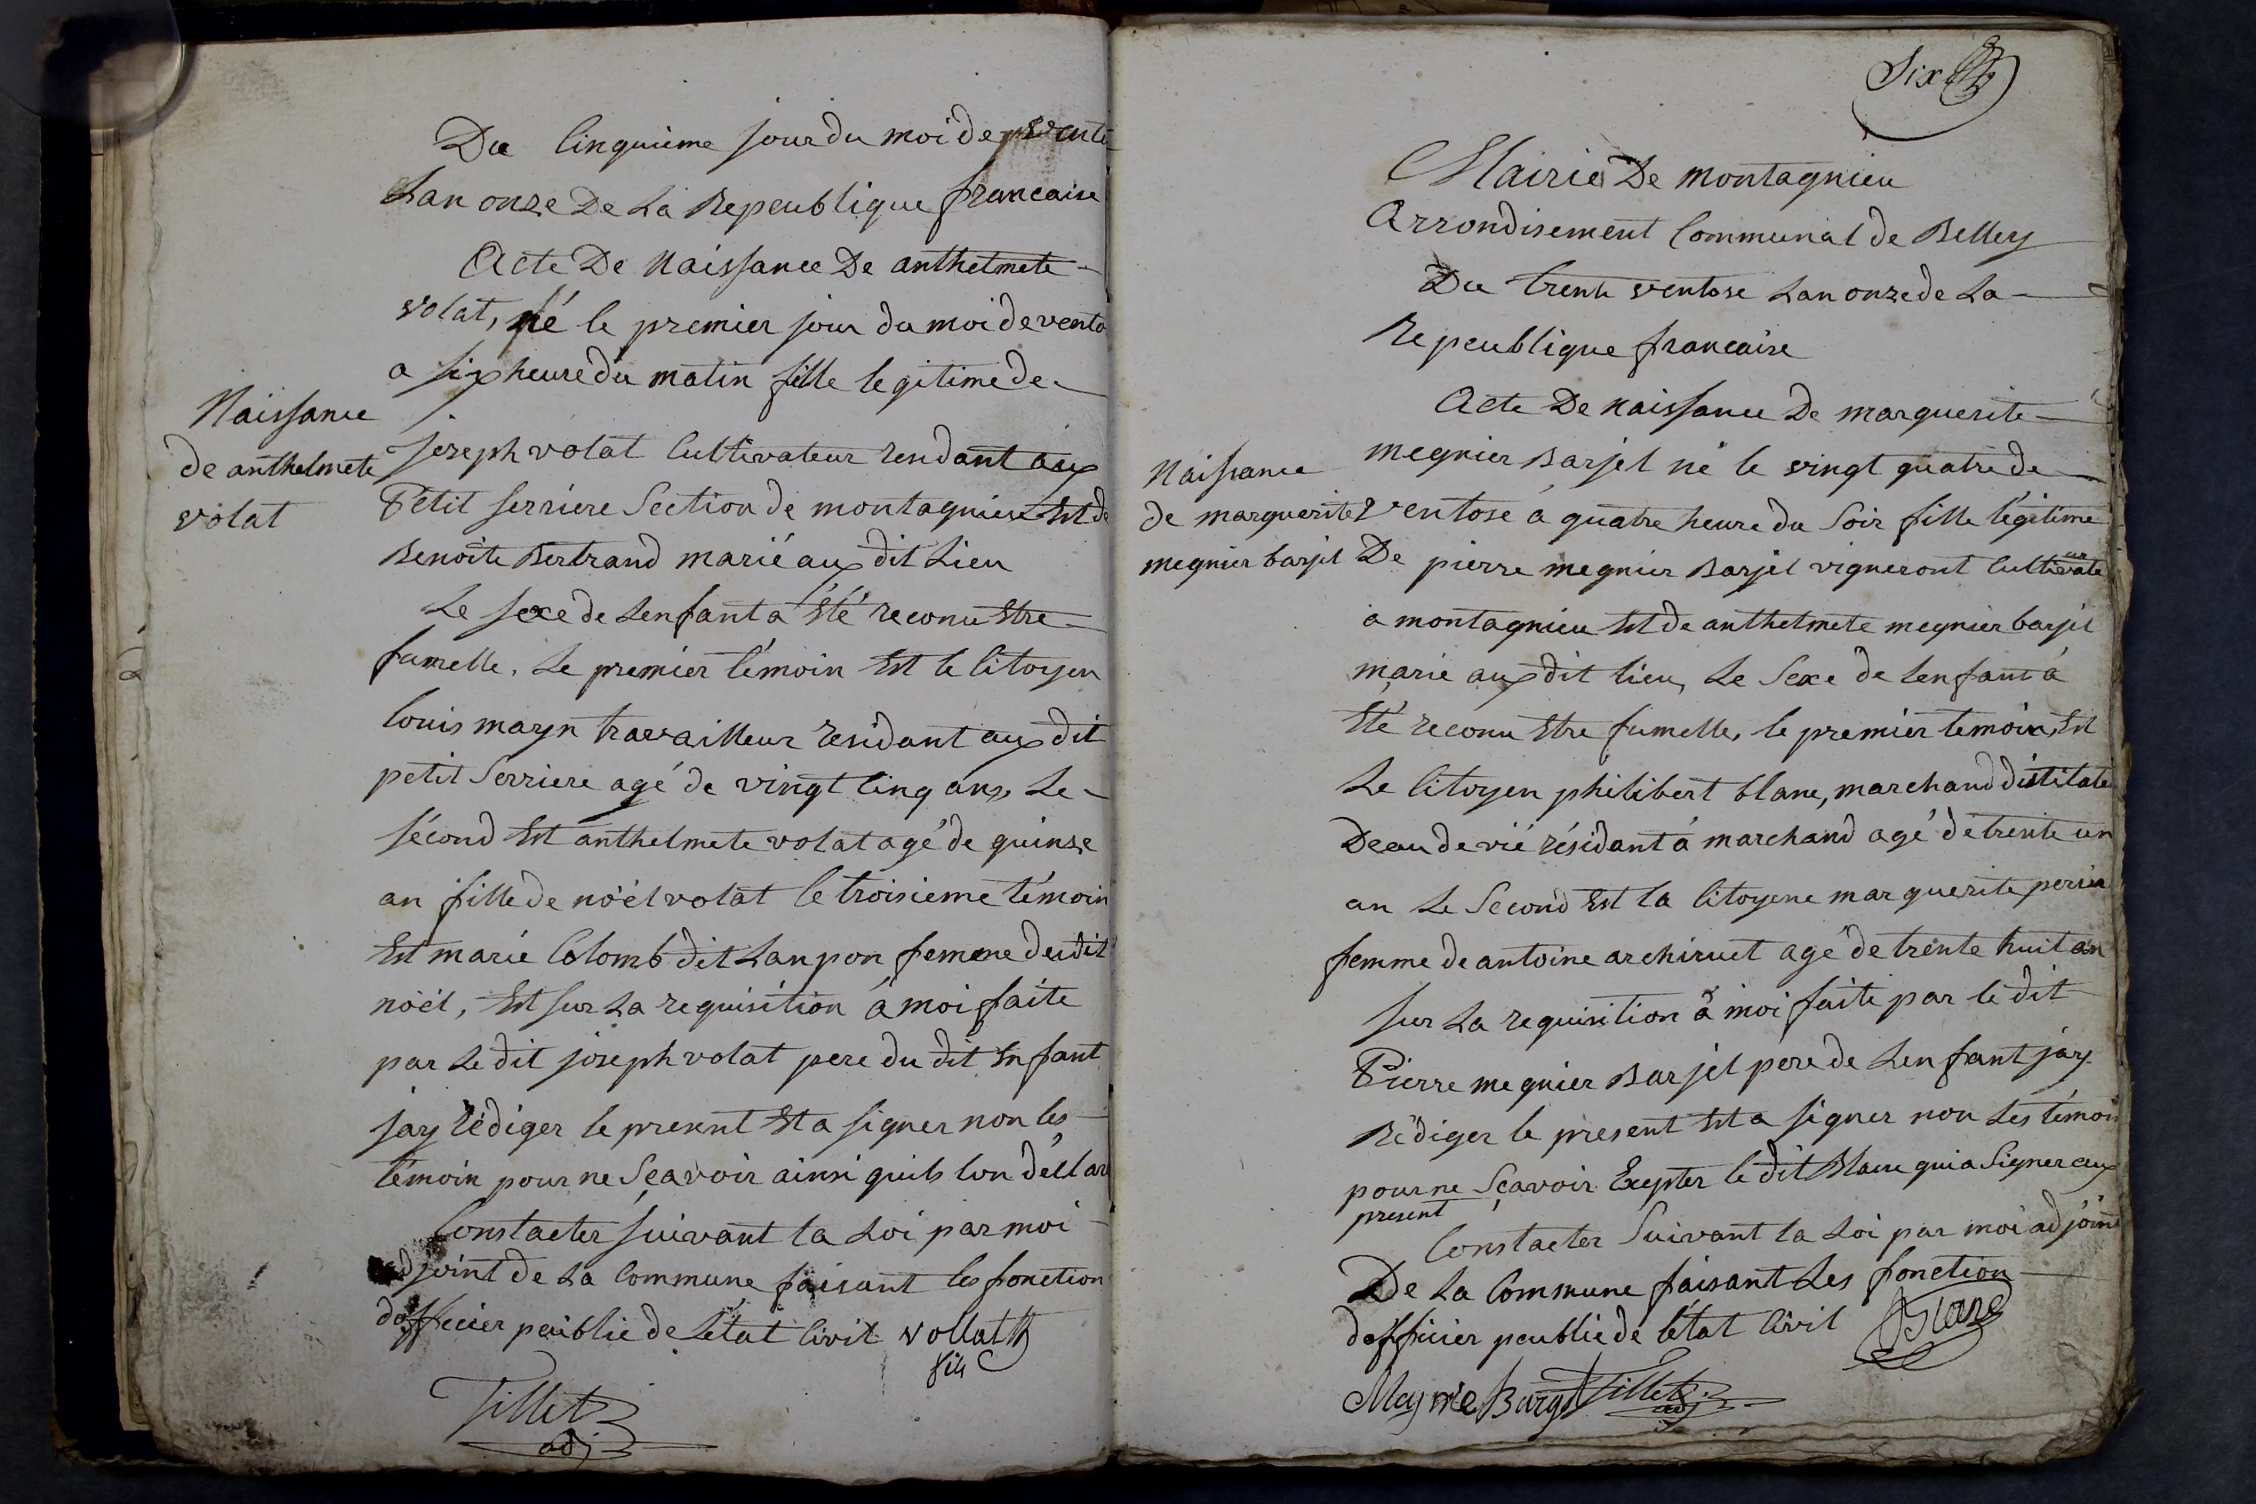 Du Cinquieme jour du moi de vento
Lan onze De La Repeublique francaise
Acte De Naissance De anthelmete
volat, né le premier jour du moi de vento
a six heure du matin fille legitime de
Naissance
de anthelmete
volat
joseph volat Cultivateur rendant aux
Petit serriere Section de montagnieu Et de
Benoite Bertrand marié aux dit Lieu
Le sexe de Lenfant a Eté reconu Etre
fumelle. Le premier témoin Est le Citoyen
Louis maryn travailleur residant aux dit
petit Serriere agé de vingt Cinq ans, Le
sécond Est anthelmete volat agé de quinze
an fille de noël volat le troisieme témoin
Est marie Colomb dit Laupon femme dudit
noël, Et sur La requisition á moi faite
par Le dit joseph volat pere du dit Enfant
jay rédiger le present Et a signer non les
témoin pour ne Sçavoir ainsi quils lon déclar
Constacter suivant la Loi par moi
adjoint de La Commune faisant les fonction
dofficier peublic de Létat Civil vollat
fils
Tillet
adj
Six
Mairie De montagnieu
Arrondisement Communal de Belley
Du trente ventose Lan onze de La
Repeublique francaise
Acte De naissance De marguerite
megnier Barjel né le vingt quatre de
Naissance
de marguerite
megnier barjel
ventose á quatre heure du Soir fille légitime
De pierre megnier Barjel vigneront Cultivate
ur
a montagnieu Et de anthelmete megnier barjel
marie aux dit lieu, Le Sexe de Lenfant á
Eté reconu Etre fumelle, le premier temoin, Est
Le Citoyen philibert blanc, marchand distilate
Deau de vié résidant á marchand agé de trente un
an Le Second Est la Citoyene marguerite perin
femme de antoine archiruet agé de trente huit an
sur La requisition á moi faite par le dit
Pierre megnier Barjel pere de Lenfant jay
Rédiger le présent Et a signer non Les témoin
pour ne Sçavoir Exepter le dit Blanc qui a Signer aux
present
Constacter Suivant la Loi par moi adjoint
De La Commune faisant Les fonction
dofficier peublic de létat Civil Blanc
Meynie Bargel Tillet
adj